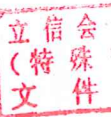 立信会
(特殊
文件